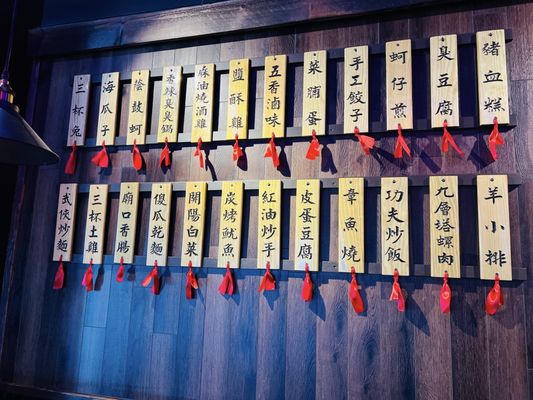 豬血糕
臭豆腐
蚵仔煎
手工餃子
菜脯蛋
五香滷味
鹽酥雞
麻油燒酒雞
香辣臭臭鍋
蔭鼓蚵
海瓜子
三杯兔
羊小排
九層塔螺肉
功夫炒飯
章魚燒
皮蛋豆腐
紅油炒手
炭烤魷魚
開陽白菜
傻瓜乾麵
廟口香腸
三杯土雞
武俠炒麵